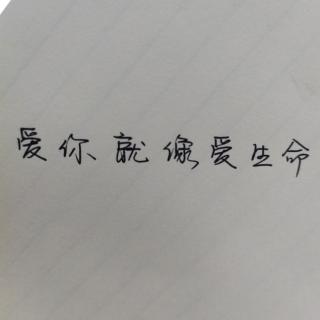 爱你就像爱生命